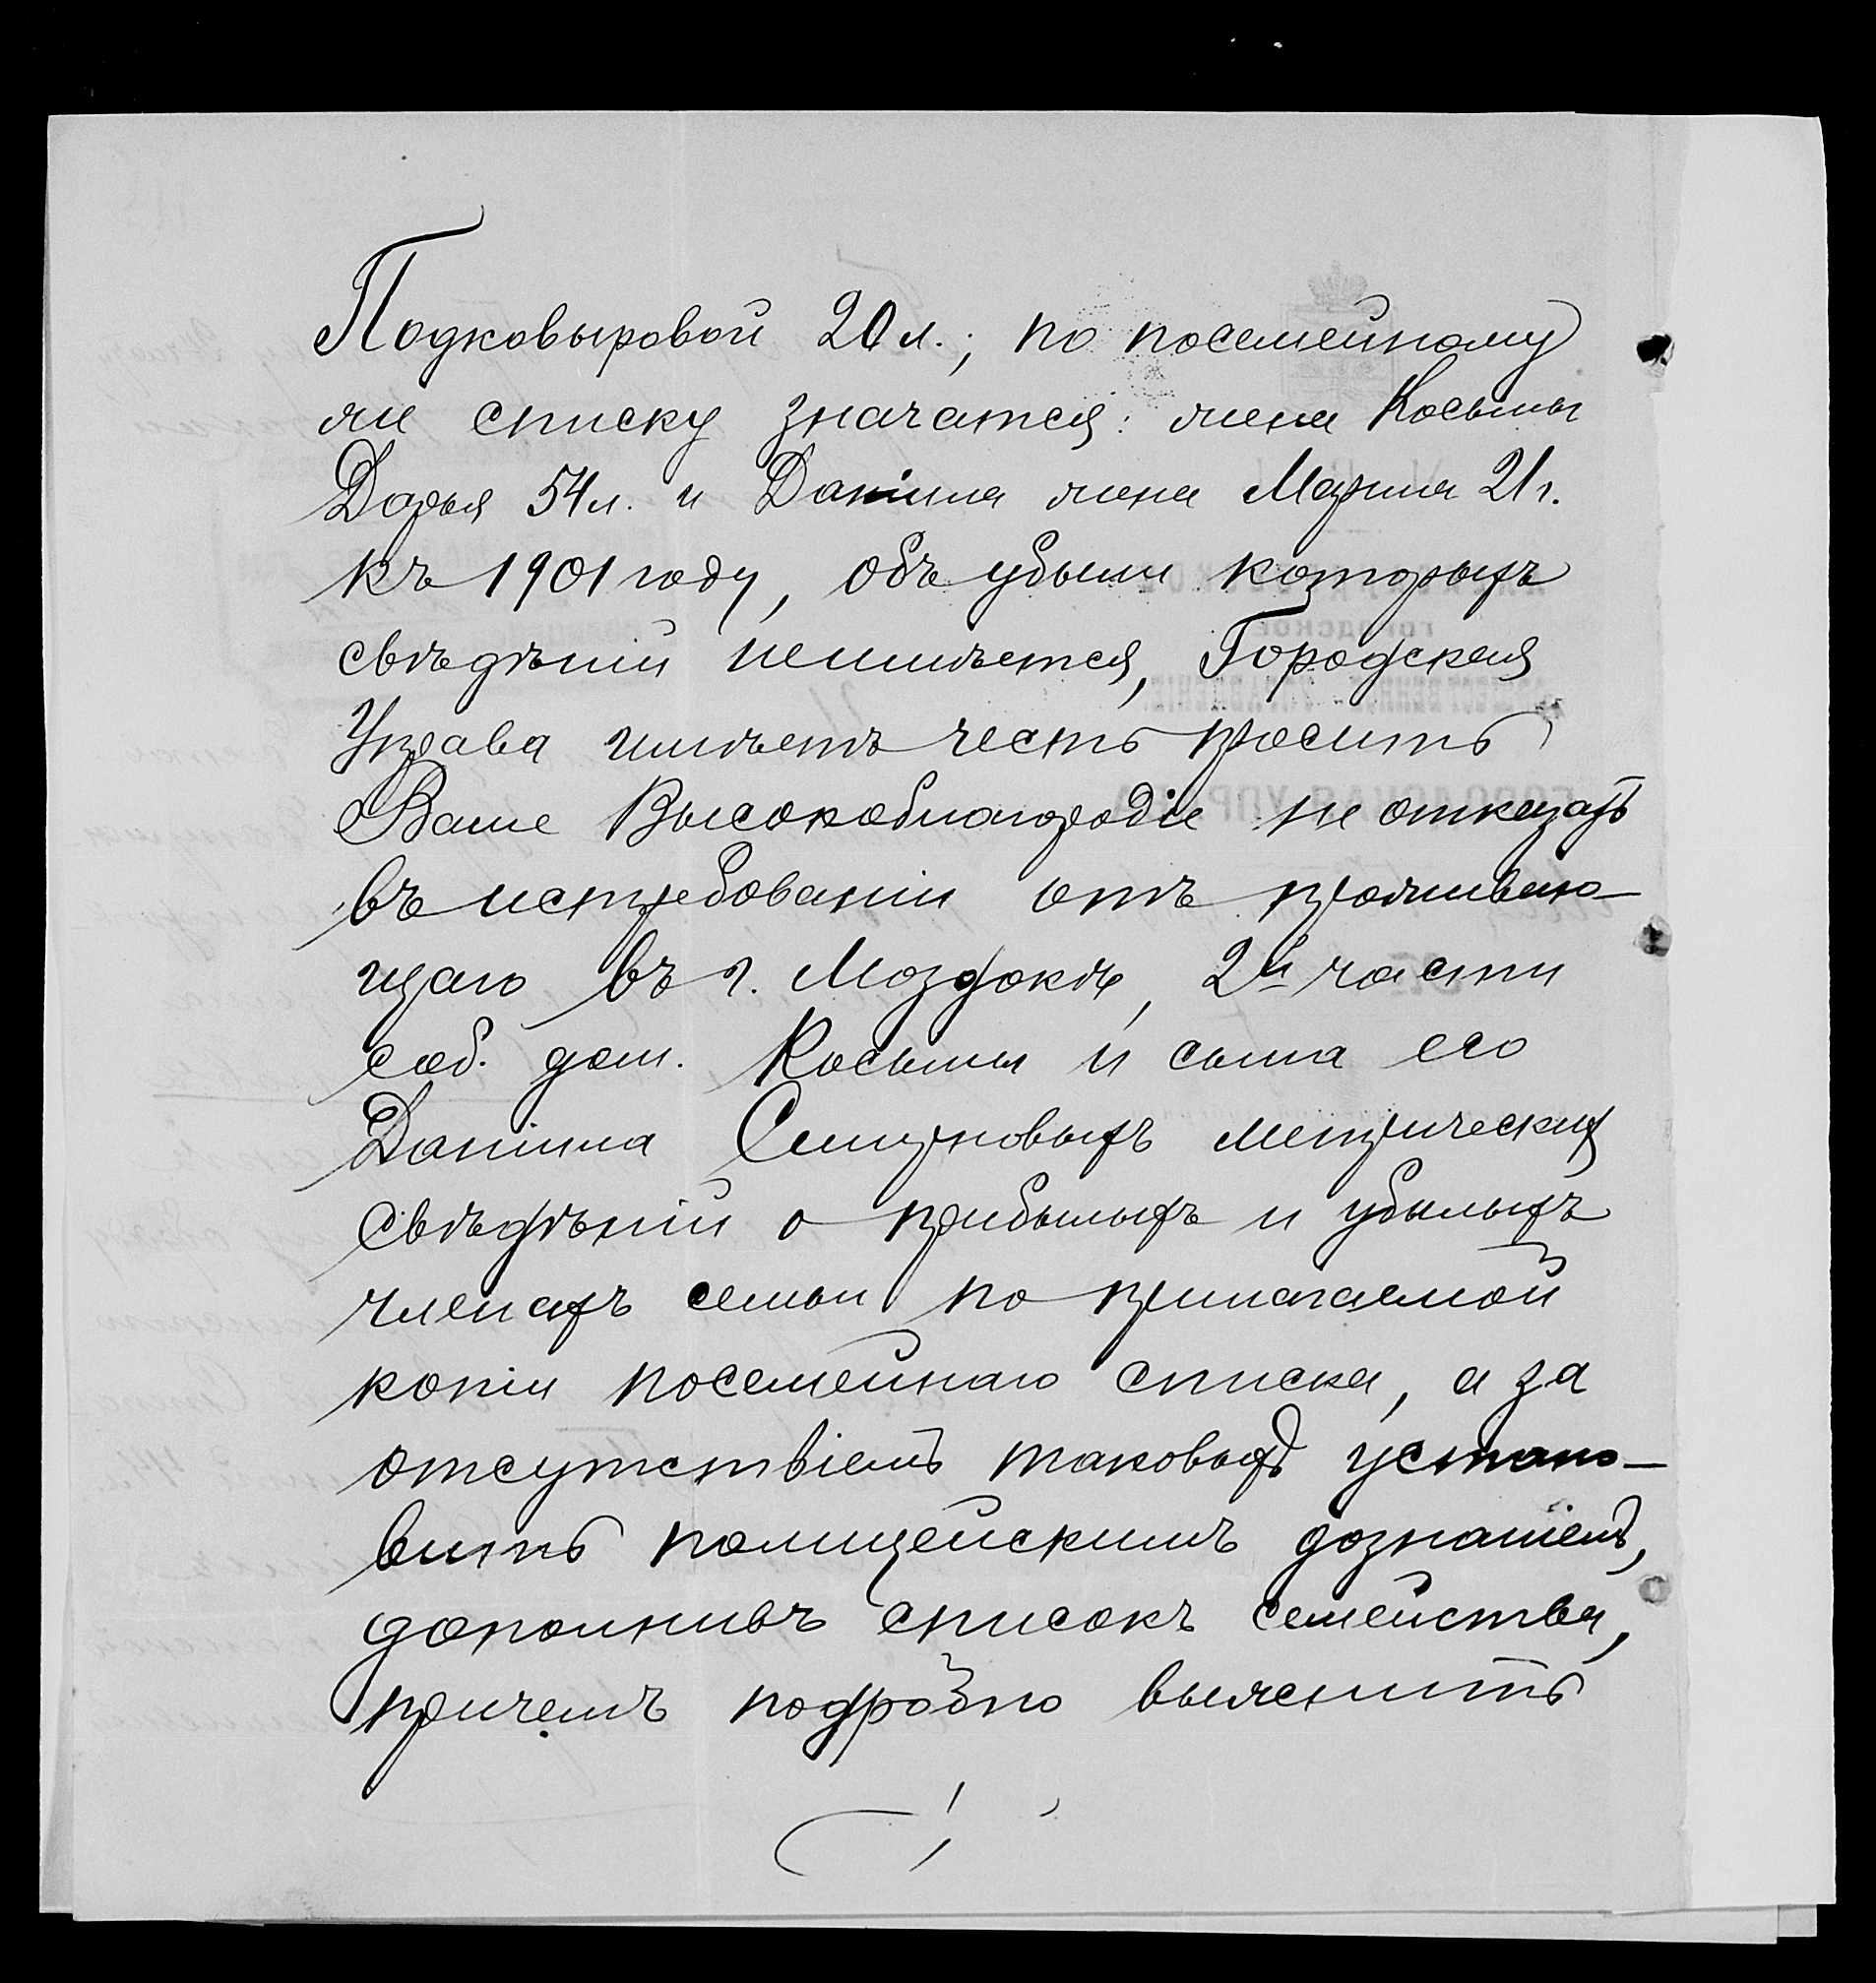 Подковыровой 20 л.; по посемейному
же списку значатся: жена Косьмы
Дарья 54 л. и Даніила жена Марина 21 г.
къ 1901 году, объ убыли которыхъ
свѣдѣній неимѣется, Городская
Управа имѣетъ честь просить
Ваше Высокоблагородіе не отказать
въ истребованіи отъ проживаю-
щаго въ г. Моздокѣ, 2й части
соб. дом. Косьмы и сына его
Даніила метрическихъ
свѣдѣній о прибылыхъ и убылыхъ
членахъ семьи по прилагаемой
копіи посемейнаго списка, а за
отсутствіемъ таковыхъ устано-
вить полицейскимъ дознаніемъ,
дополнивъ списокъ семейства,
причемъ подробно выяснить